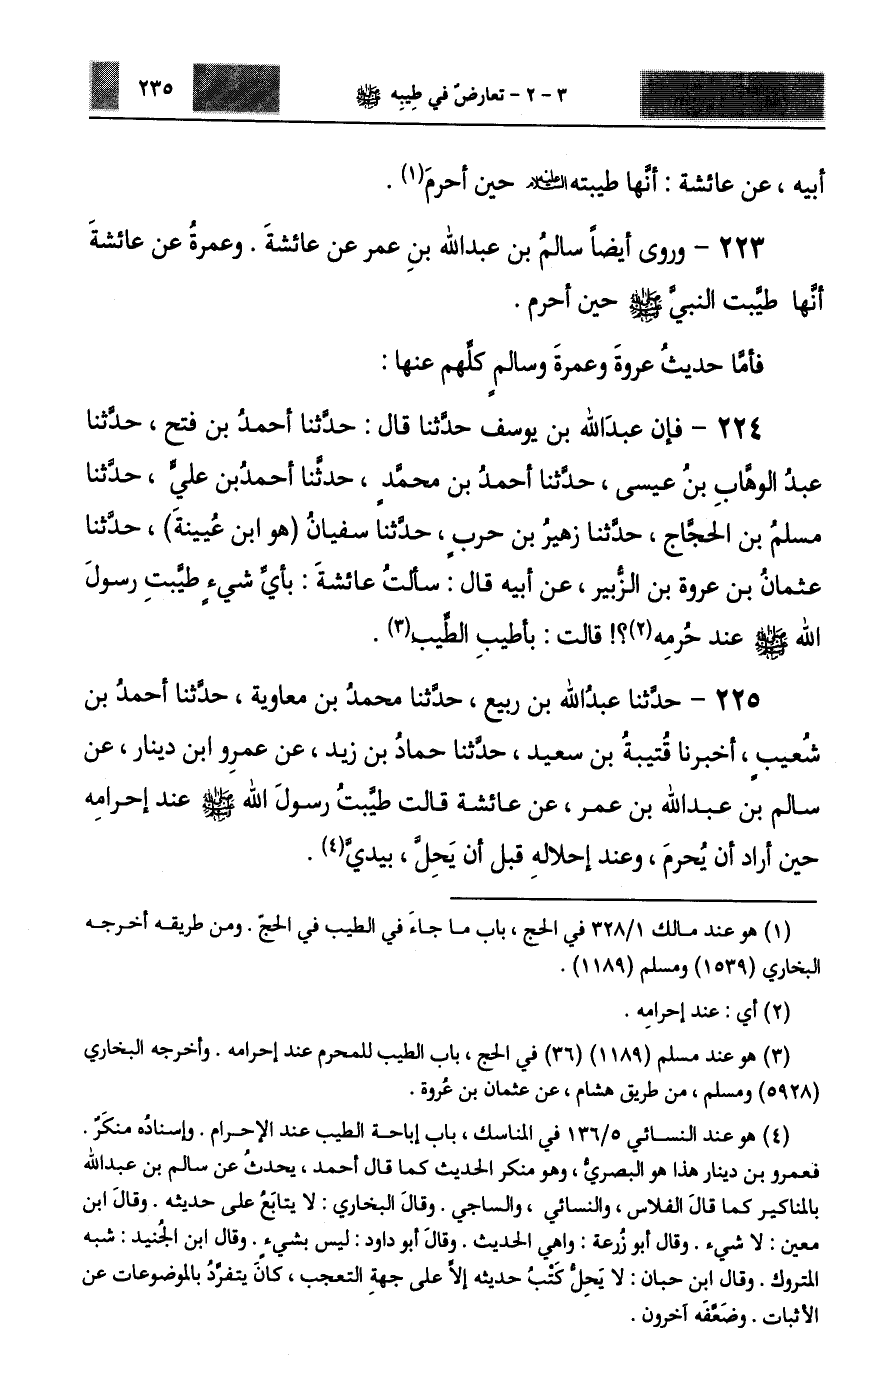 ٢٣٥ ٣ - ٢ - تعارضٌ في طِيبِه ﷺ
أبيه ، عن عائشة : أنَّها طيبته عليه السلام حين أحرمَ(١) .
٢٢٣ - وروى أيضاً سالمُ بن عبدالله بنِ عمر عن عائشةَ . وعمرةُ عن عائشةَ
أنَّها طيَّبت النبيَّ ﷺ حين أحرم .
فأمَّا حديثُ عروةَ وعمرةَ وسالمٍ كلَّهم عنها :
٢٢٤ - فإن عبدَالله بن يوسف حدَّثنا قال : حدَّثنا أحمدُ بن فتح ، حدَّثنا
عبدُ الوهَّابِ بنُ عيسى ، حدَّثنا أحمدُ بن محمَّدٍ ، حدَّثنا أحمدُبن عليٍّ ، حدَّثنا
مسلمُ بن الحجَّاج ، حدَّثنا زهيرُ بن حربٍ ، حدَّثنا سفيانُ (هو ابن عُيينةَ) ، حدَّثنا
عثمانُ بن عروة بن الزُّبير ، عن أبيه قال : سألتُ عائشةَ : بأيِّ شيءٍ طيَّبتِ رسولَ
الله ﷺ عند حُرمِه(٢)؟! قالت : بأطيبِ الطِّيب(٣) .
٢٢٥ - حدَّثنا عبدُالله بن ربيع ، حدَّثنا محمدُ بن معاوية ، حدَّثنا أحمدُ بن
شُعيبٍ ، أخبرنا قُتيبةُ بن سعيد ، حدَّثنا حمادُ بن زيد ، عن عمرِو ابن دينار ، عن
سالم بن عبدالله بن عمر ، عن عائشة قالت طيَّبتُ رسولَ الله ﷺ عند إحرامِه
حين أراد أن يُحرمَ ، وعند إحلالهِ قبل أن يَحِلَّ ، بيديَّ(٤) .
(١) هو عند مالك ٣٢٨/١ في الحج ، باب ما جاءَ في الطيب في الحجّ . ومن طريقه أخرجه
البخاري (١٥٣٩) ومسلم (١١٨٩) .
(٢) أي : عند إحرامِه .
(٣) هو عند مسلم (١١٨٩) (٣٦) في الحج ، باب الطيب للمحرم عند إحرامه . وأخرجه البخاري
(٥٩٢٨) ومسلم ، من طريق هشام ، عن عثمان بن عُروة .
(٤) هو عند النسائي ١٣٦/٥ في المناسك ، باب إباحة الطيب عند الإحرام . وإسنادُه منكَرٌ .
فعمرو بن دينار هذا هو البصريُّ ، وهو منكر الحديث كما قال أحمد ، يحدثُ عن سالم بن عبدالله
بالمناكير كما قالَ الفلاس ، والنسائي ، والساجي . وقالَ البخاري : لا يتابَعُ على حديثه . وقالَ ابن
معين : لا شيء . وقال أبو زُرعة : واهي الحديث . وقالَ أبو داود : ليس بشيءٍ . وقال ابن الجُنيد : شبه
المتروك . وقال ابن حبان : لا يَحِلُّ كَتْبُ حديثه إلاَّ على جهةِ التعجب ، كانَ يتفرَّدُ بالموضوعات عن
الأثبات . وضَعَّفَه آخرون .